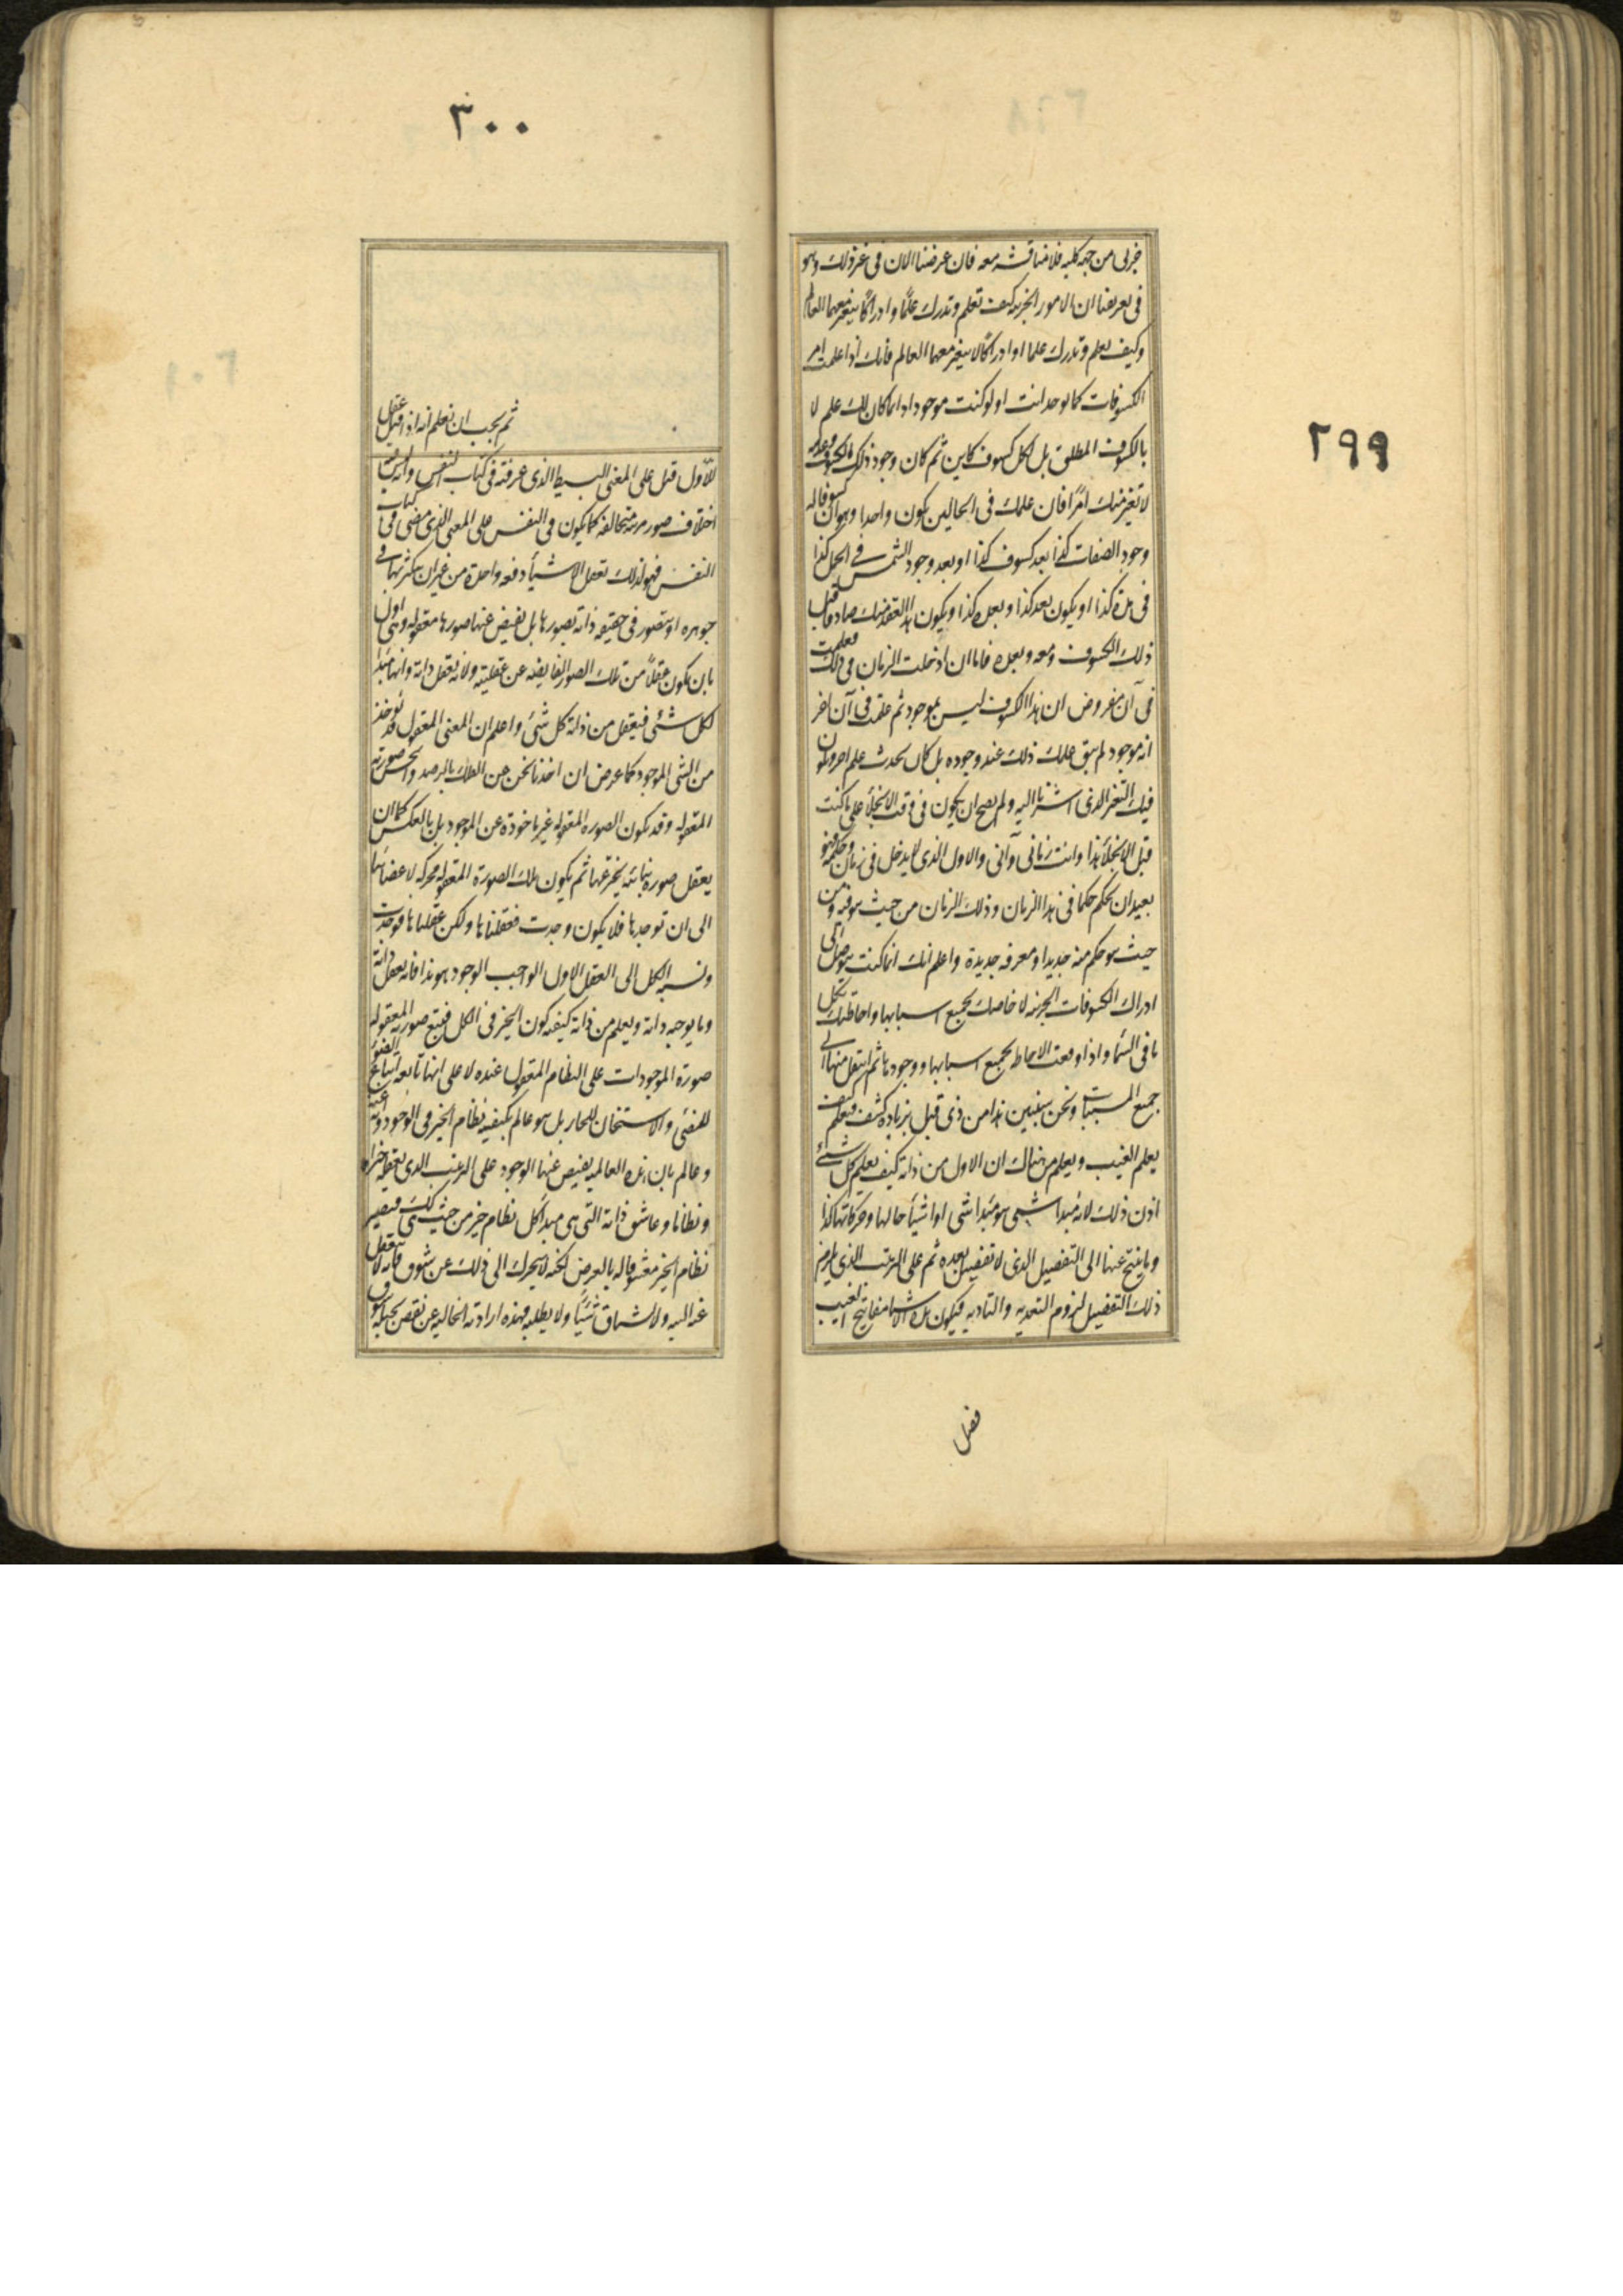 ٢٩٩
جزئى من جهة كلية فلا مناقشة معه فان غرضنا الان فى غير ذلك وهو
فى تعريفنا ان الامور الجزئية كيف تعلم وتدرك علمًا وادراكًا يتغير معهما العالم
وكيف يعلم وتدرك علما وادراكًا لا يتغير معهما العالم فانك اذا علمت امر
الكسوفات كما توجد انت او لو كنت موجودا دائما كان لك علم لا
بالكسوف المطلق بل لكل كسوف كاين ثم كان وجود ذلك الكسوف وعدمه
لا تغير منك امرًا فان علمك فى الحالين يكون واحدا وهو ان كسوفا له
وجود بصفات كذا بعد كسوف كذا او بعد وجود الشمس فى الحمل كذا
فى مدة كذا او يكون بعد كذا وبعده كذا ويكون هذا العقد منك صادقا قبل
ذلك الكسوف ومعه وبعده فاما ان ادخلت الزمان فى ذلك فعلمت
فى آن مفروض ان هذا الكسوف ليس بموجود ثم علمت فى آن اخر
انه موجود لم يبق علمك ذلك عند وجوده بل كان يحدث علم اخر ويكون
فيك التغير الذى اشرنا اليه ولم يصح ان يكون فى وقت الانجلا على ما كنت
قبل الانجلا هذا وانت زمانى وآنى والاول الذى لا يدخل فى زمان وحكمه فهو
بعيد ان يحكم حكما فى هذا الزمان وذلك الزمان من حيث هو فيه ومن
حيث هو حكم منه جديد او معرفة جديدة واعلم انك انما كنت تتوصل الى
ادراك الكسوفات الجزئية لاحاطتك بجميع اسبابها واحاطتك بكل
ما فى السما واذا وقعت الاحاطة بجميع اسبابها ووجودها ثم انتقل منها الى
جميع المسببات ونحن سنبين هذا من ذى قبل بزيادة كشف فتعلم كيف
يعلم الغيب ويعلم من هناك ان الاول من ذاته كيف يعلم كل شئ
اذن ذلك لانه مبدا شى هو مبدا شى او اشيا حالها وحركاتها كذا
وما ينتج عنها الى التفصيل الذى لا تفصيل بعده ثم على الترتيب الذى يلزم
ذلك التفصيل لزوم التعدية والتادية فيكون هذه الاشيا مفاتيح الغيب
فصل
٣٠٠
ثم يجب ان تعلم انه اذا قيل عقل
للاول قيل على المعنى البسيط الذى عرفته فى كتاب النفس وانه ليس فيه
اختلاف صور مرتبة متخالفة كما يكون فى النفس على المعنى الذى مضى فى كتاب
النفس فهو لذلك تعقل الاشيأ دفعه واحدة من غير ان يتكثر بها فى
جوهره او تتصور فى حقيقه ذاته بصورها بل تفيض عنها صورها معقوله وهى اولى
بان يكون عقلاً من تلك الصور الفايضه عن عقليته ولانه يعقل ذاته وانها مبدا
لكل شئى فيعقل من ذاته كل شئ واعلم ان المعنى المعقول قد تؤخذ
من الشى الموجود كما عرض ان اخذنا نحن عن الفلك بالرصد والحس صورته
المعقوله وقد يكون الصوره المعقوله غير ماخوذة عن الموجود بل بالعكس كما ان
يعقل صورة بنائيه يخترعها ثم يكون تلك الصورة المعقوله محركه لاعضائنا
الى ان توجدها فلا يكون وجدت فعقلناها ولكن عقلناها فوجدت
ونسبه الكل الى العقل الاول الواجب الوجود هو هذا فانه يعقل ذاته
وما يوجبه ذاته ويعلم من ذاته كيفيه كون الخير فى الكل فيتبع صورته المعقوله
صورة الموجودات على النظام المعقول عنده لا على انها تابعه اتباع الضو
للمضئ والاسخان للحار بل هو عالم بكيفيه نظام الخير فى الوجود وانه عنه
وعالم بان هذه العالميه يفيض عنها الوجود على الترتيب الذى يعقله خيرا
ونظاما وعاشق ذاته التى هى مبدأ كل نظام خير من حيث هى كذلك فيصير
نظام الخير معشوقا له بالعرض لكنه لا يتحرك الى ذلك عن شوق فانه لا ينفعل
عنه البته ولا يشتاق شيئًا ولا يطلبه فهذه ارادته الخاليه عن نقص يجلبه شوق